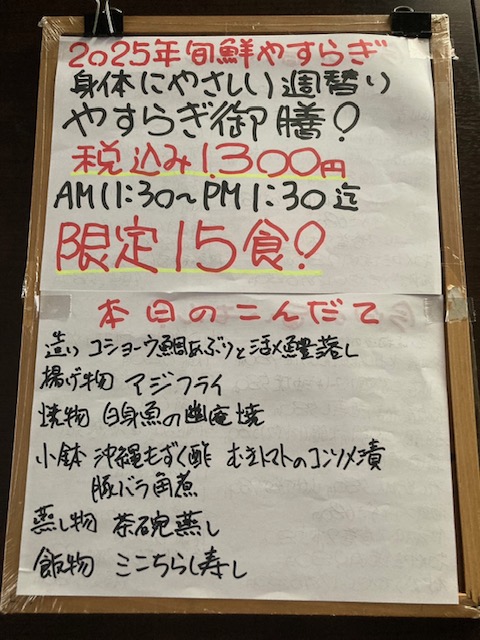 2025年旬鮮やすらぎ
身体にやさしい週替り
やすらぎ御膳!
税込み1.300円
AM11:30〜PM1:30迄
限定15食!
本日のこんだて
造り コショーウ鯛あぶりと活〆鱧落し
揚げ物 アジフライ
焼物 白身魚の幽庵焼
小鉢 沖縄もずく酢 むきトマトのコンソメ漬
豚バラ角煮
蒸し物 茶碗蒸し
飯物 ミニちらし寿し